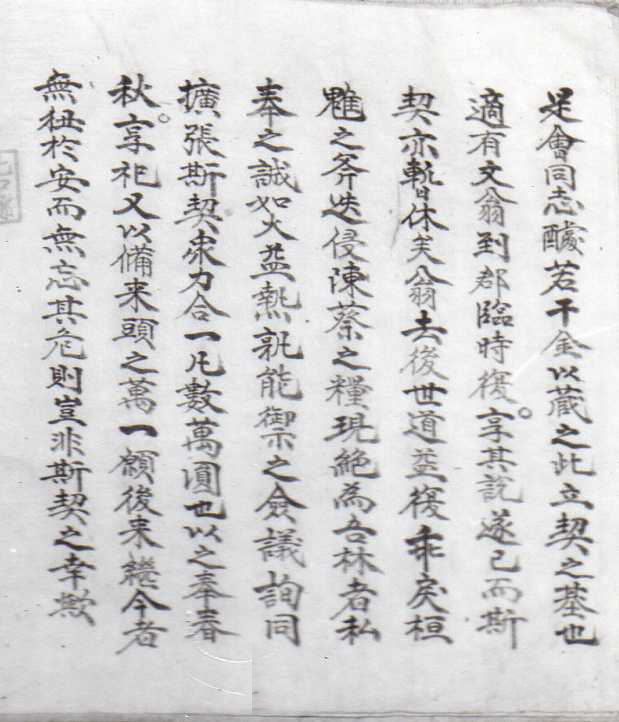 是會同志醵若干金以蔵之此立契之基也
適有文翁到郡臨時復享其說遂已而斯
契亦暫休矣翁去後世道益復乖戾桓
魋之斧迭侵陳蔡之糧現絶為吾林者私
奉之誠如火益熱孰能禦之僉議詢同
擴張斯契衆力合一凡數萬圓也以之奉春
秋享祀又以備来頭之萬一願後来繼今者
無狃於安而無忘其危則豈非斯契之幸歟